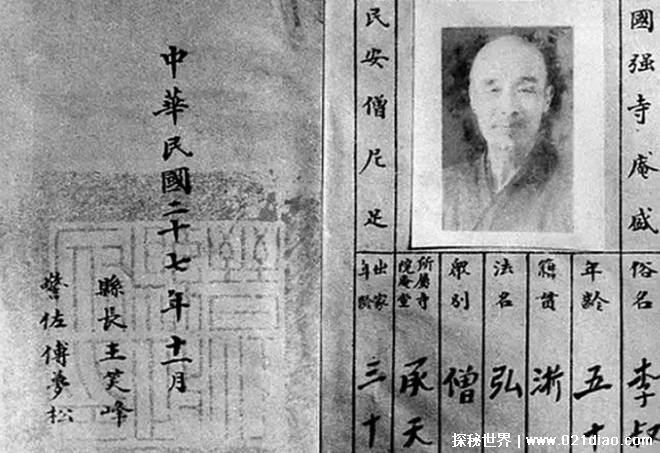 國强寺庵盛
民安僧尼足
俗名 李叔
年齡 五十
籍貫 浙
法名 弘
眾別 僧
所屬寺院庵堂 承天
出家年齡 三十
中華民國二十七年十一月
縣長王笑峰
警佐傅夢松
探秘世界 | www.021diao.com